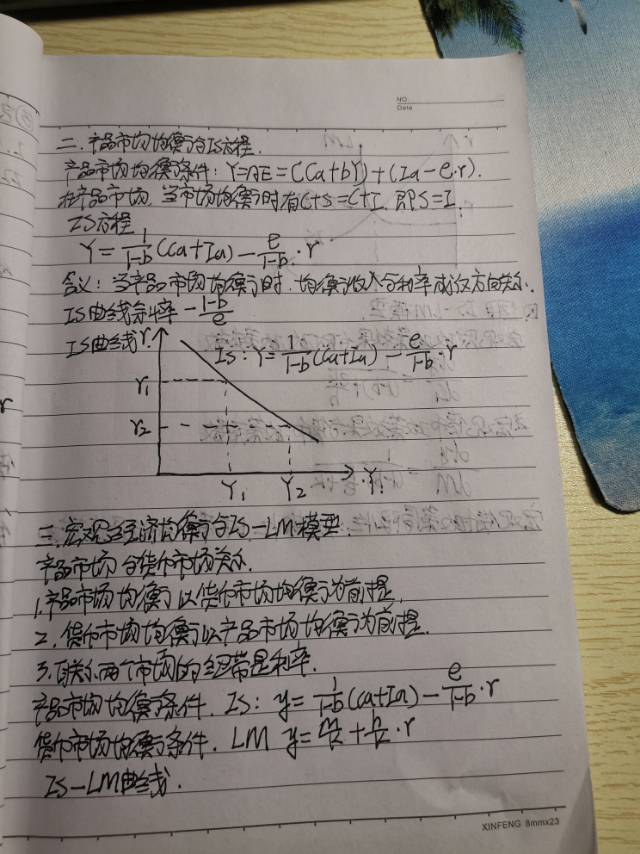 NO.
Date
二.产品市场均衡与IS方程.
产品市场均衡条件: Y=AE=(Ca+bY)+(Ia-e·r).
在产品市场,当市场均衡时有C+S=C+I,即S=I.
IS方程
Y=\frac{1}{1-b}(Ca+Ia)-\frac{e}{1-b}·r
含义:当产品市场均衡时,均衡收入与利率成反方向关系.
IS曲线斜率 -\frac{1-b}{e}
IS曲线 r.
IS: Y=\frac{1}{1-b}(Ca+Ia)-\frac{e}{1-b}·r
r1
r2
Y1 Y2 Y.
三.宏观经济均衡与IS-LM模型.
产品市场与货币市场关系.
1.产品市场均衡以货币市场均衡为前提.
2.货币市场均衡以产品市场均衡为前提.
3.联系两个市场的纽带是利率.
产品市场均衡条件. IS: y=\frac{1}{1-b}(Ca+Ia)-\frac{e}{1-b}·r
货币市场均衡条件. LM y=\frac{m}{k}+\frac{h}{k}·r
IS-LM曲线.
XINFENG 8mmx23